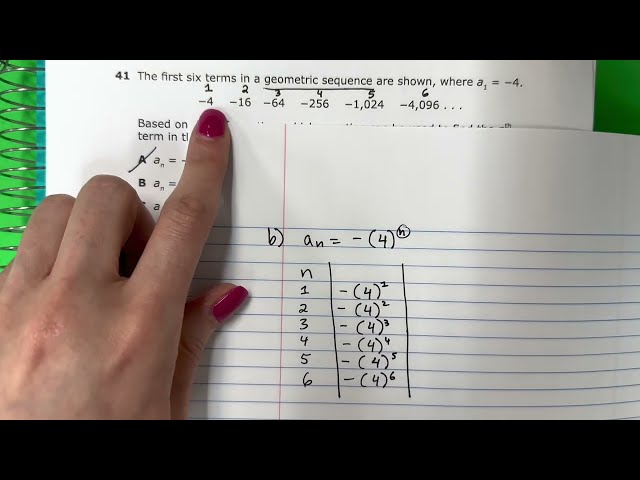 41 The first six terms in a geometric sequence are shown, where a₁ = −4.
1 2 3 4 5 6
−4 −16 −64 −256 −1,024 −4,096 . . .
Based on
term in
A aₙ = −
B aₙ =
b) aₙ = −(4)ⁿ
n
1 −(4)¹
2 −(4)²
3 −(4)³
4 −(4)⁴
5 −(4)⁵
6 −(4)⁶